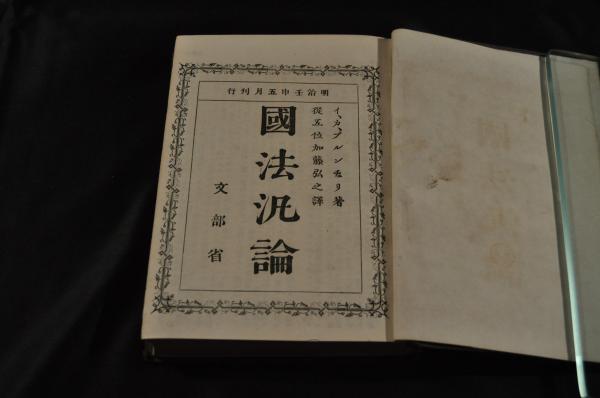 明治壬申五月刊行
イ、カ、ブルンチュリ著
從五位加藤弘之譯
國法汎論
文部省